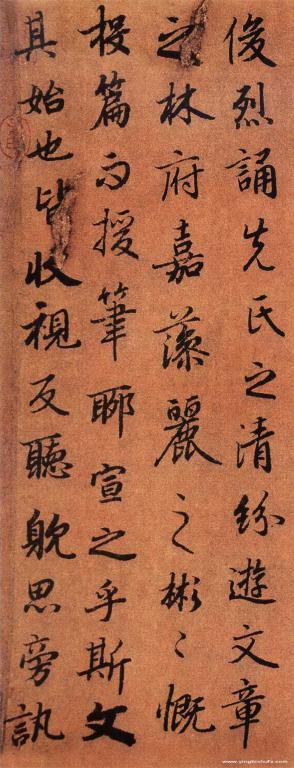 俊烈誦先民之清紛遊文章
之林府嘉藻麗之彬〻慨
投篇而援筆聊宣之乎斯文
其始也皆收視反聽躭思旁訊
www.yingbishufa.com